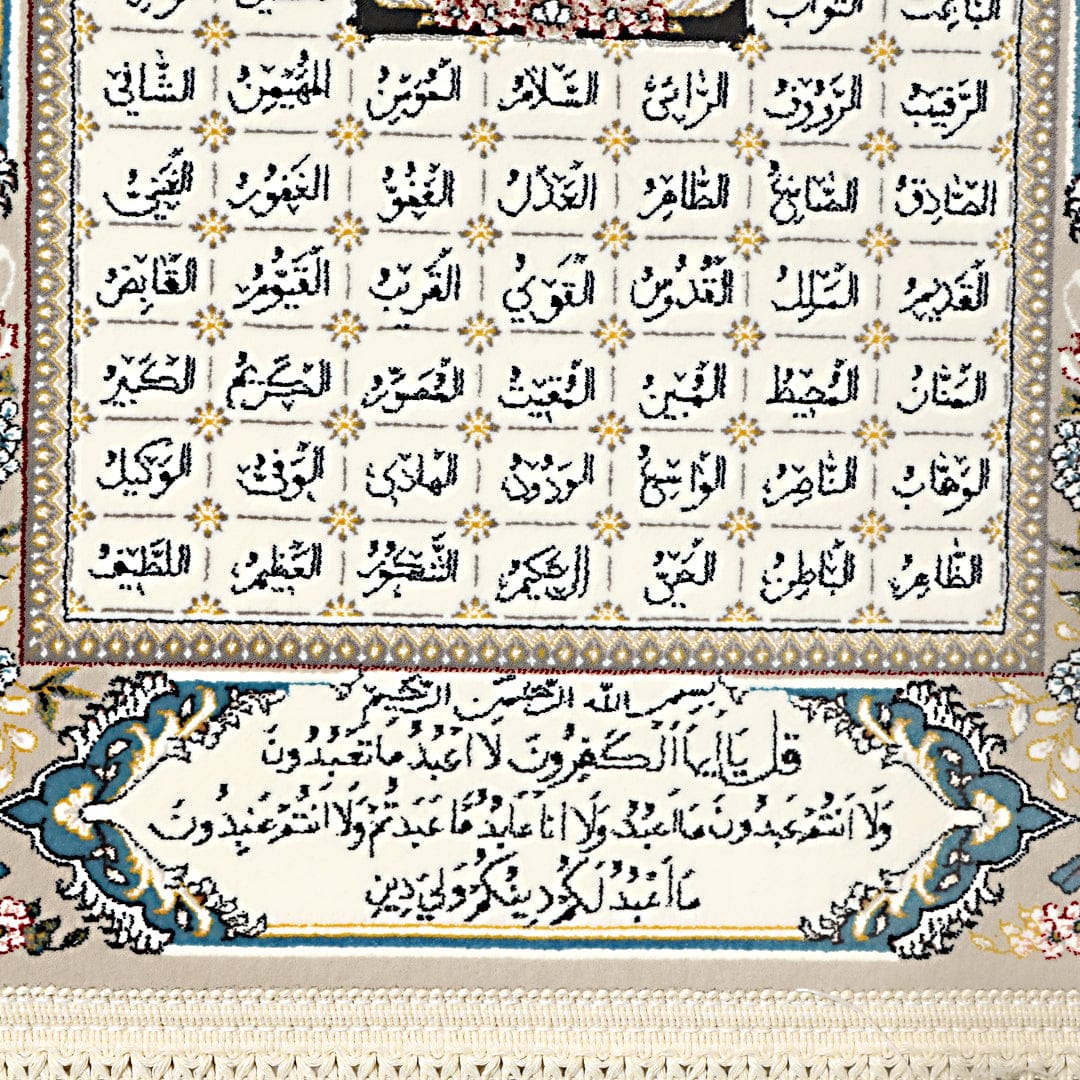 الباعث التواب
الرقيب الرؤوف الرائي السلام المؤمن المهيمن الشافي
الصادق الصانع الطاهر العدل العفو الغفور الغني
القديم الملك القدوس القوي القريب القيوم القابض
المنان المحيط المبين المقيت المصور الكريم الكبير
الوهاب الناصر الواسع الودود الهادي الوفي الوكيل
الظاهر الباطن الحي الحكيم الشكور العظيم اللطيف
بسم الله الرحمن الرحيم
قل يا ايها الكفرون لا اعبد ما تعبدون
ولا انتم عبدون ما اعبد ولا انا عابد ما عبدتم ولا انتم عبدون
ما اعبد لكم دينكم ولي دين